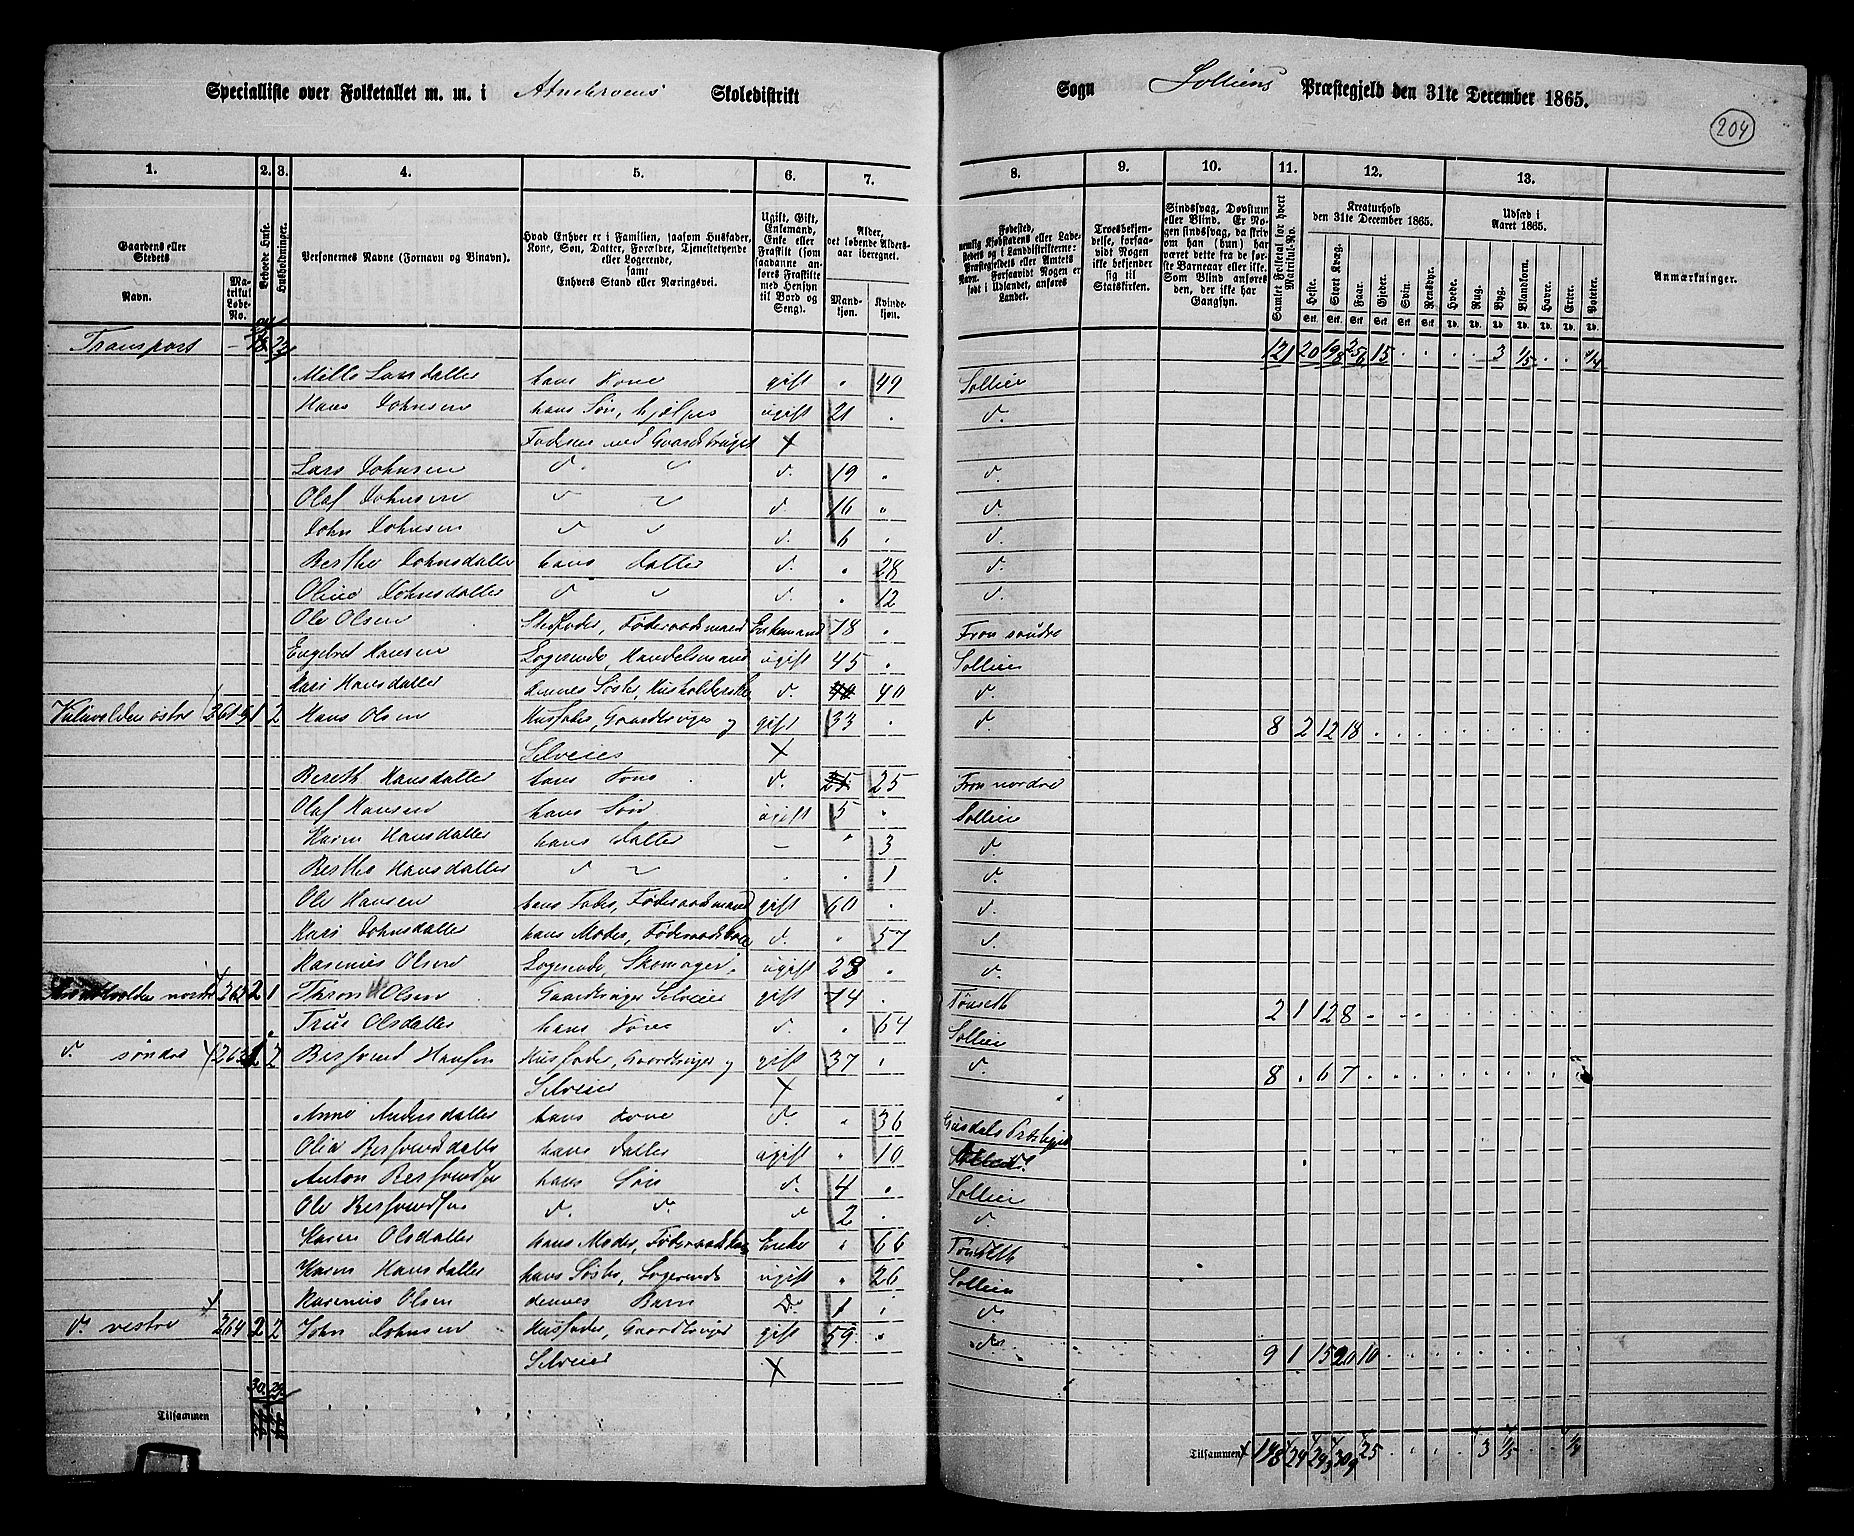 Specialliste over Folketallet m. m. i Atnebroens Skoledistrikt
Sogn Solliens Præstegjeld den 31te December 1865.
204
1. 2. 3. 4. 5. 6. 7.
8. 9. 10. 11. 12. 13.
Gaardens eller Stedets
Navn.
Matrikul Løbe-No.
Beboede Huse.
Husholdninger.
Personernes Navne (Fornavn og Binavn).
Hvad Enhver er i Familien, saasom Husfader, Kone, Søn, Datter, Forældre, Tjenestetyende eller Logerende, samt Enhvers Stand eller Næringsvei.
Ugift, Gift, Enkemand, Enke eller Fraskilt (som saadanne anføres Fraskilte med Hensyn til Bord og Seng).
Alder, det løbende Alders-aar iberegnet.
Mandkjøn.
Kvindekjøn.
Fødested, nemlig Kjøbstadens eller Ladestedets og i Landdistrikterne: Præstegjeldets eller Amtets Navn. Forsaavidt Nogen er født i Udlandet, anføres Landet.
Troesbekjendelse, forsaavidt Nogen ikke bekjender sig til Statskirken.
Sindssvag, Døvstum eller Blind. Er Nogen sindssvag, da skriv om han (hun) har været dette fra de første Barneaar eller ikke. Som Blind anføres den, der ikke har Gangsyn.
Samlet Folketal for hvert Matrikul-No.
Kreaturhold den 31te December 1865.
Heste. Stort Kvæg. Faar. Gjeder. Svin. Rensdyr.
Udsæd i Aaret 1865.
Hvede. Rug. Byg. Blandkorn. Havre. Erter. Poteter.
Anmærkninger.
Transport 23 121 20 198 256 15 3 1/5 1/4
hans Kone gift " 49 Sollien
Hans Johnsen hans Søn, hjælper ugift 21 d.
Faderen med Gaardsbruget
Lars Johnsen d. d. 19 d.
Olaf Johnsen d. 16 d.
John Johnsen d. 6 d.
Berthe Johnsdatter hans Datter d. " 28 d.
Oline Johnsdatter d. " 12 d.
Ole Olsen Enkemand 78 Fron søndre
Engebret Hansen Logerende, Handelsmand ugift 45 Sollien
Kari Hansdatter dennes Søster, Husholderske d. 40 d.
østre 261 1 2 Hans Olsen Husfader, Gaardbruger og gift 33 d. 8 2 12 18
Selveier
Bereth Hansdatter hans Kone d. 25 Fron nordre
Olaf Hansen hans Søn ugift 5 Sollien
Karen Hansdatter hans Datter – " 3 d.
Berthe Hansdatter d. 1 d.
Ole Hansen hans Fader, Føderaadsmand gift 60 d.
Kari Johnsdatter hans Moder, Føderaadskone d. " 57 d.
Rasmus Olsen Logerende, Skomager ugift 28 d.
nordre 262 2 1 Thron Olsen Gaardbruger Selveier gift 74 Tønseth 2 1 12 8
Olsdatter hans Kone d. " 64 Sollien
d. søndre 263 1 2 Berfvend Hansen Husfader, Gaardbruger og gift 37 d. 8 6 7
Selveier
Anne Andersdatter hans Kone d. " 36
Olia Berfvendsdatter hans Datter ugift " 10
Anton Berfvendsen hans Søn d. 4 Sollien
Ole Berfvendsen d. d. d. 2 d.
Karen Olsdatter hans Moder, Føderaadskone Enke " 66 Tønseth
Karen Hansdatter hans Søster, Logerende ugift " 26 Sollien
Rasmus Olsen dennes Barn d. 1 d.
d. vestre 264 2 2 John Johnsen Husfader, Gaardbruger gift 59 d. 9 1 15 20 10
Selveier
Tilsammen
Tilsammen 148 24 309 25 3 1/5 1/4